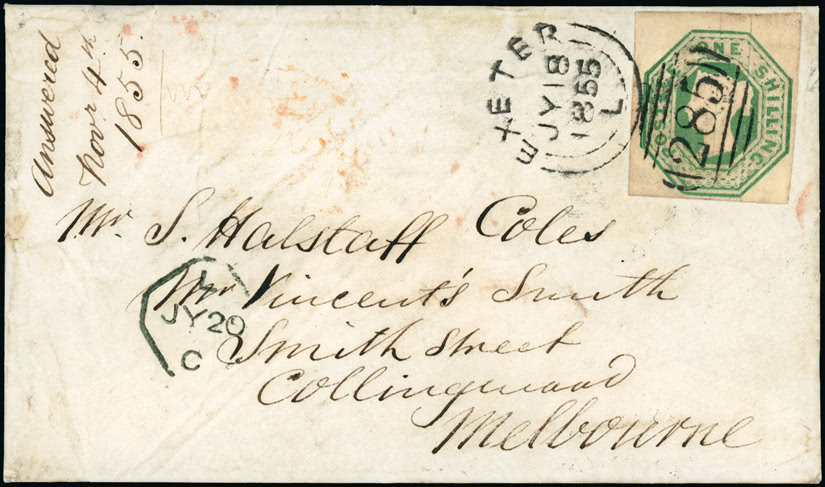 Answered
Novr 4th
1855.
EXETER
JY18
1855
L
285
ONE SHILLING
Mr. S. Halstaff Coles
Mr Vincent's Smith
Smith Street
Collingwood
Melbourne
JY20
C